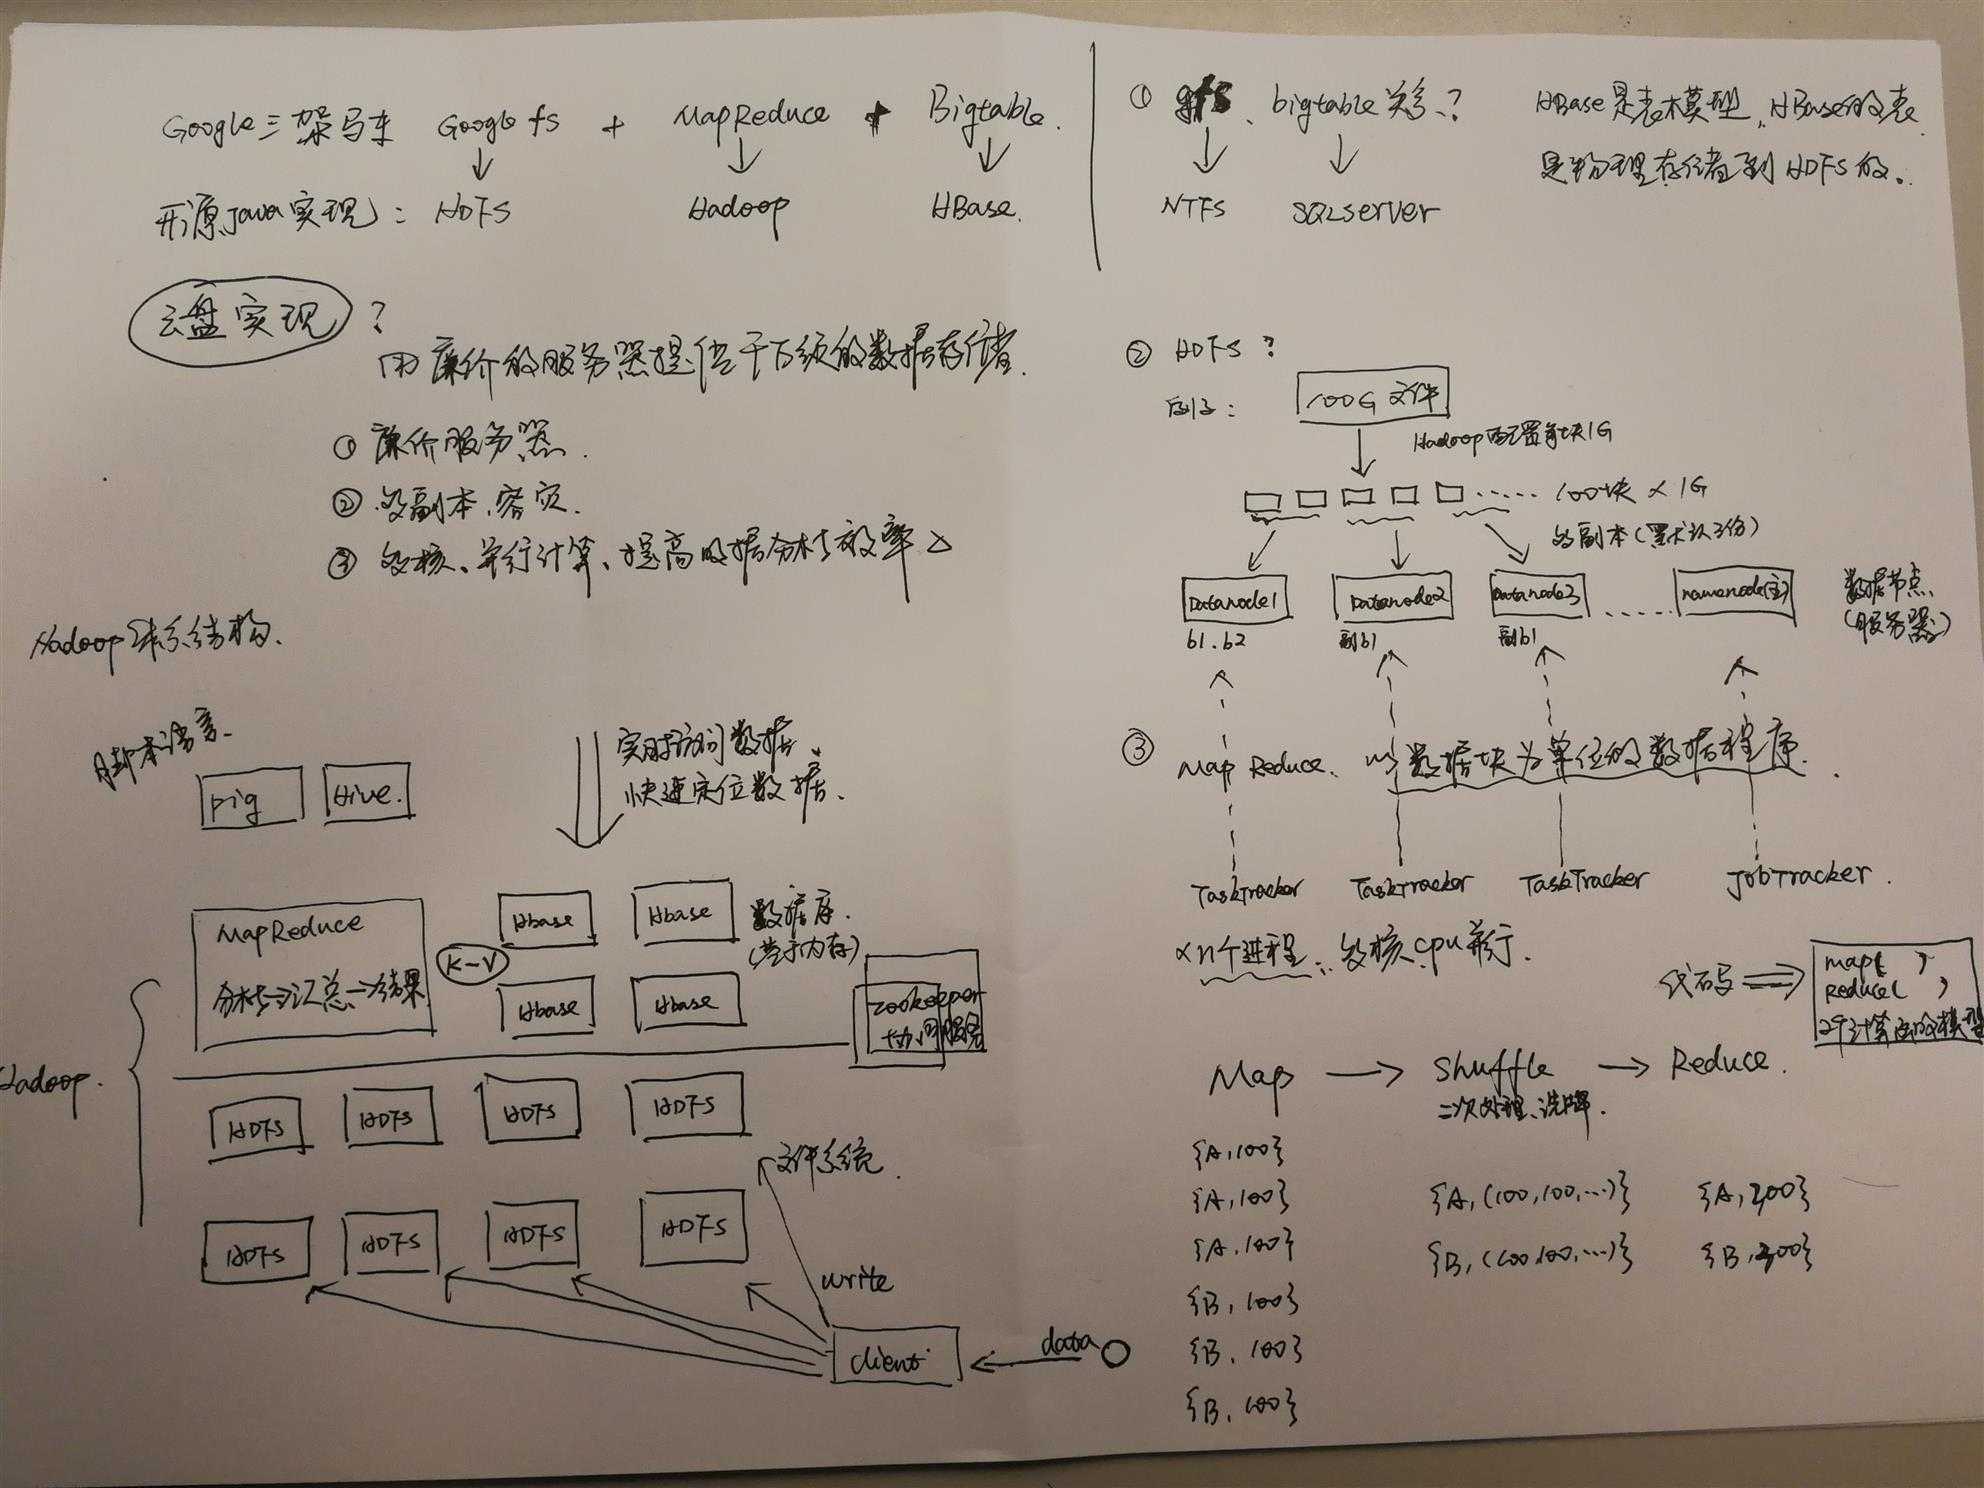 Google三架马车 Google fs + MapReduce + Bigtable.
开源java实现: HDFS Hadoop HBase.
云盘实现?
用廉价的服务器提供千万级的数据存储.
① 廉价服务器.
② 多副本、容灾.
③ 多核、并行计算、提高数据分析效率
Hadoop体系结构.
脚本语言.
pig Hive.
实时访问数据.
快速定位数据.
MapReduce
分析→汇总→结果
K-V
Hbase Hbase
Hbase Hbase
数据库.
(基于内存)
zookeeper
协同服务
Hadoop.
HDFS HDFS HDFS HDFS
文件系统.
HDFS HDFS HDFS HDFS
write
client
data
① gfs、bigtable关系?
NTFS SQLserver
HBase是表模型,HBase的表
是物理存储到HDFS的.
② HDFS?
例子:
100G 文件
Hadoop配置每块1G
...... 100块 x 1G
多副本(默认3份)
Datanode1 Datanode2 Datanode3 ...... namenode(主)
数据节点
(服务器)
b1.b2 副b1 副b1
③ Map Reduce. 以数据块为单位的数据程序.
TaskTracker TaskTracker TaskTracker JobTracker.
xn个进程、多核cpu并行.
代码
map( )
Reduce( )
Map → Shuffle → Reduce.
二次处理、洗牌.
{A,100}
{A,100} {A,(100,100,...)} {A,300}
{A,100} {B,(100,100,...)} {B,300}
{B,100}
{B,100}
{B,100}